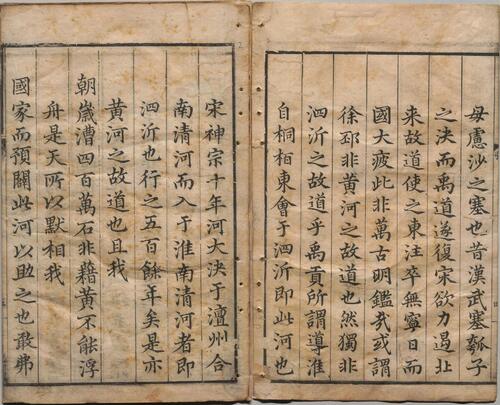 毋慮沙之塞也昔漢武塞瓠子
之決而禹道遂復宋欲力遏北
來故道使之東注卒無寧日而
國大疲此非萬古明鑑㢤或謂
徐邳非黄河之故道也然獨非
泗沂之故道乎禹貢所謂導淮
自桐栢東會于泗沂即此河也
宋神宗十年河大決于澶州合
南清河而入于淮南清河者即
泗沂也行之五百餘年矣是亦
黄河之故道也且我
朝歲漕四百萬石非藉黄不能浮
舟是天所以默相我
國家而預闢此河以助之也敢弗